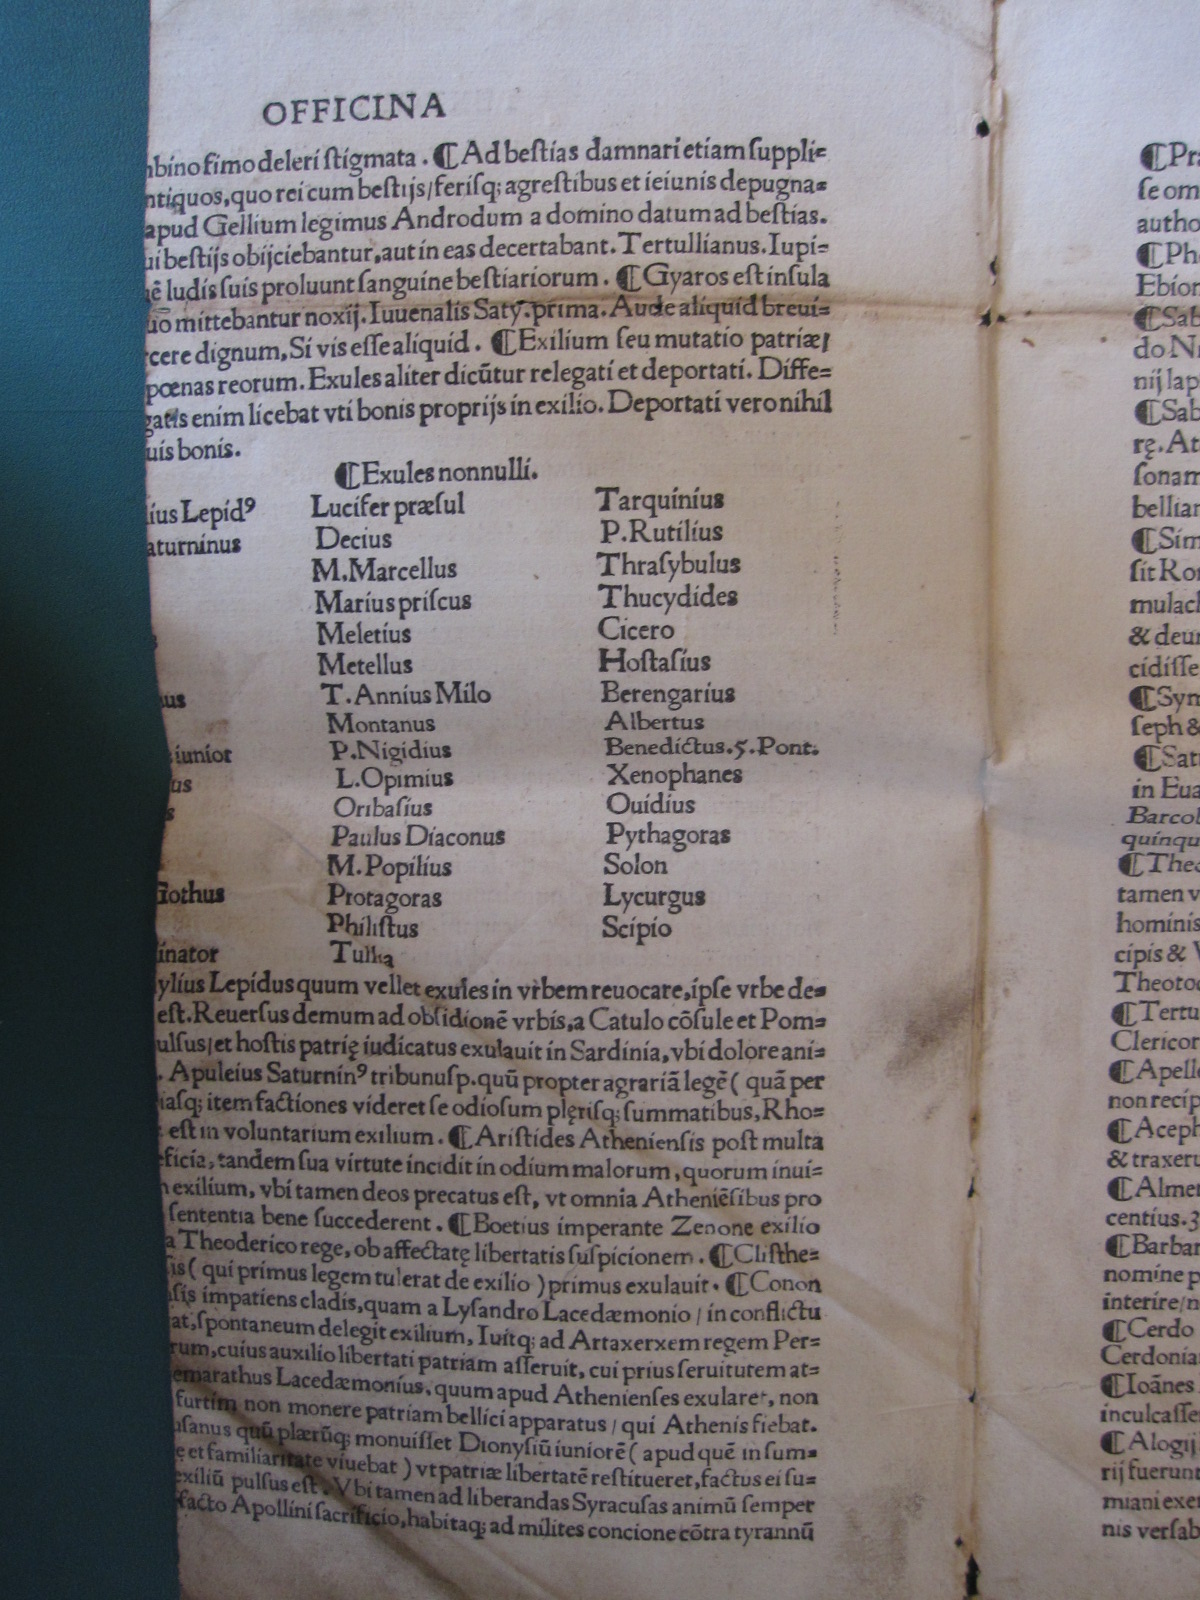 OFFICINA
bino fimo deleri ſtigmata . ⸿Ad beſtias damnari etiam ſuppli⸗
ntiquos,quo rei cum beſtijs/feriſq; agreſtibus et ieiunis depugna⸗
apud Gellium legimus Androdum a domino datum ad beſtias.
ui beſtijs obijciebantur,aut in eas decertabant. Tertullianus. Iupi⸗
ludis ſuis proluunt ſanguine beſtiariorum . ⸿Gyaros eſt inſula
uo mittebantur noxij. Iuuenalis Saty. prima. Aude aliquid breui⸗
rcere dignum, Si vis eſſe aliquid . ⸿Exilium ſeu mutatio patriæ/
pœnas reorum. Exules aliter dicūtur relegati et deportati. Diffe⸗
gatis enim licebat vti bonis proprijs in exilio. Deportati vero nihil
uis bonis.
⸿Exules nonnulli.
ius Lepidꝰ
aturninus
us
iunior
us
s
Gothus
inator
Lucifer præſul
Decius
M.Marcellus
Marius priſcus
Meletius
Metellus
T.Annius Milo
Montanus
P.Nigidius
L.Opimius
Oribaſius
Paulus Diaconus
M.Popilius
Protagoras
Philiſtus
Tullia
Tarquinius
P.Rutilius
Thraſybulus
Thucydides
Cicero
Hoſtaſius
Berengarius
Albertus
Benedictus.5.Pont.
Xenophanes
Ouidius
Pythagoras
Solon
Lycurgus
Scipio
ylius Lepidus quum vellet exules in vrbem reuocare,ipſe vrbe de⸗
eſt. Reuerſus demum ad obſidionē vrbis,a Catulo cōſule et Pom⸗
ulſus/et hoſtis patrię iudicatus exulauit in Sardinia,vbi dolore ani⸗
. Apuleius Saturninꝰ tribunuſp.quū propter agrariā legē( quā per
iaſq; item factiones videret ſe odioſum plęriſq; ſummatibus, Rho⸗
eſt in voluntarium exilium . ⸿Ariſtides Athenienſis poſt multa
eficia, tandem ſua virtute incidit in odium malorum ,quorum inui⸗
n exilium, vbi tamen deos precatus eſt, vt omnia Atheniēſibus pro
ſententia bene ſuccederent . ⸿Boetius imperante Zenone exilio
a Theoderico rege, ob affectatę libertatis ſuſpicionem . ⸿Cliſthe⸗
ſis ( qui primus legem tulerat de exilio ) primus exulauit . ⸿Conon
ſis impatiens cladis,quam a Lyſandro Lacedæmonio / in conflictu
at,ſpontaneum delegit exilium, Iuitq; ad Artaxerxem regem Per⸗
rum,cuius auxilio libertati patriam aſſeruit, cui prius ſeruitutem at⸗
emarathus Lacedæmonius, quum apud Athenienſes exularet, non
furtim non monere patriam bellici apparatus / qui Athenis fiebat.
uſanus quū plærūq; monuiſſet Dionyſiū iuniorē ( apud quē in ſum⸗
e et familiaritate viuebat ) vt patriæ libertatē reſtitueret,factus ei ſu⸗
exiliū pulſus eſt . Vbi tamen ad liberandas Syracuſas animū ſemper
facto Apollini ſacrificio, habitaq; ad milites concione cōtra tyrannū
⸿Pra
ſe om
autho
⸿Pho
Ebion
⸿Sab
do Ni
nij lap
⸿Sab
rę. At
ſonam
bellian
⸿Sim
ſit Ro
mulach
& deur
cidiſſe
⸿Sym
ſeph &
⸿Satu
in Eua
Barcob
quinqu
⸿Theo
tamen v
hominis
cipis & V
Theotoc
⸿Tertu
Clericor
⸿Apell
non recip
⸿Aceph
& traxeru
⸿Almer
centius.3
⸿Barbar
nomine p
interire/n
⸿Cerdo
Cerdonia
⸿Ioānes
inculcaſſe
⸿Alogij
rij fuerunt
miani exer
nis verſab